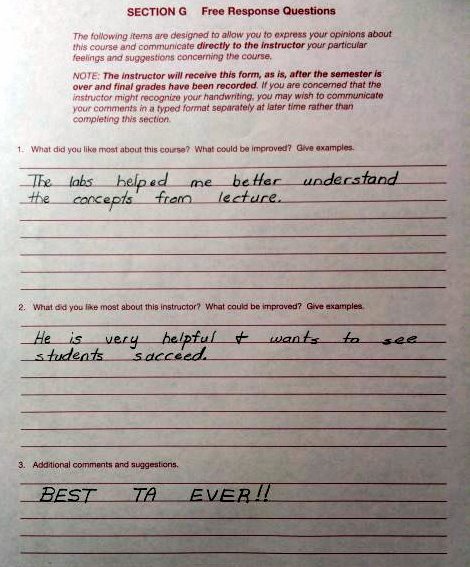 SECTION G Free Response Questions
The following items are designed to allow you to express your opinions about
this course and communicate directly to the instructor your particular
feelings and suggestions concerning the course.
NOTE: The instructor will receive this form, as is, after the semester is
over and final grades have been recorded. If you are concerned that the
instructor might recognize your handwriting, you may wish to communicate
your comments in a typed format separately at later time rather than
completing this section.
1. What did you like most about this course? What could be improved? Give examples.
The labs helped me better understand
the concepts from lecture.
2. What did you like most about this instructor? What could be improved? Give examples.
He is very helpful & wants to see
students succeed.
3. Additional comments and suggestions.
BEST TA EVER!!